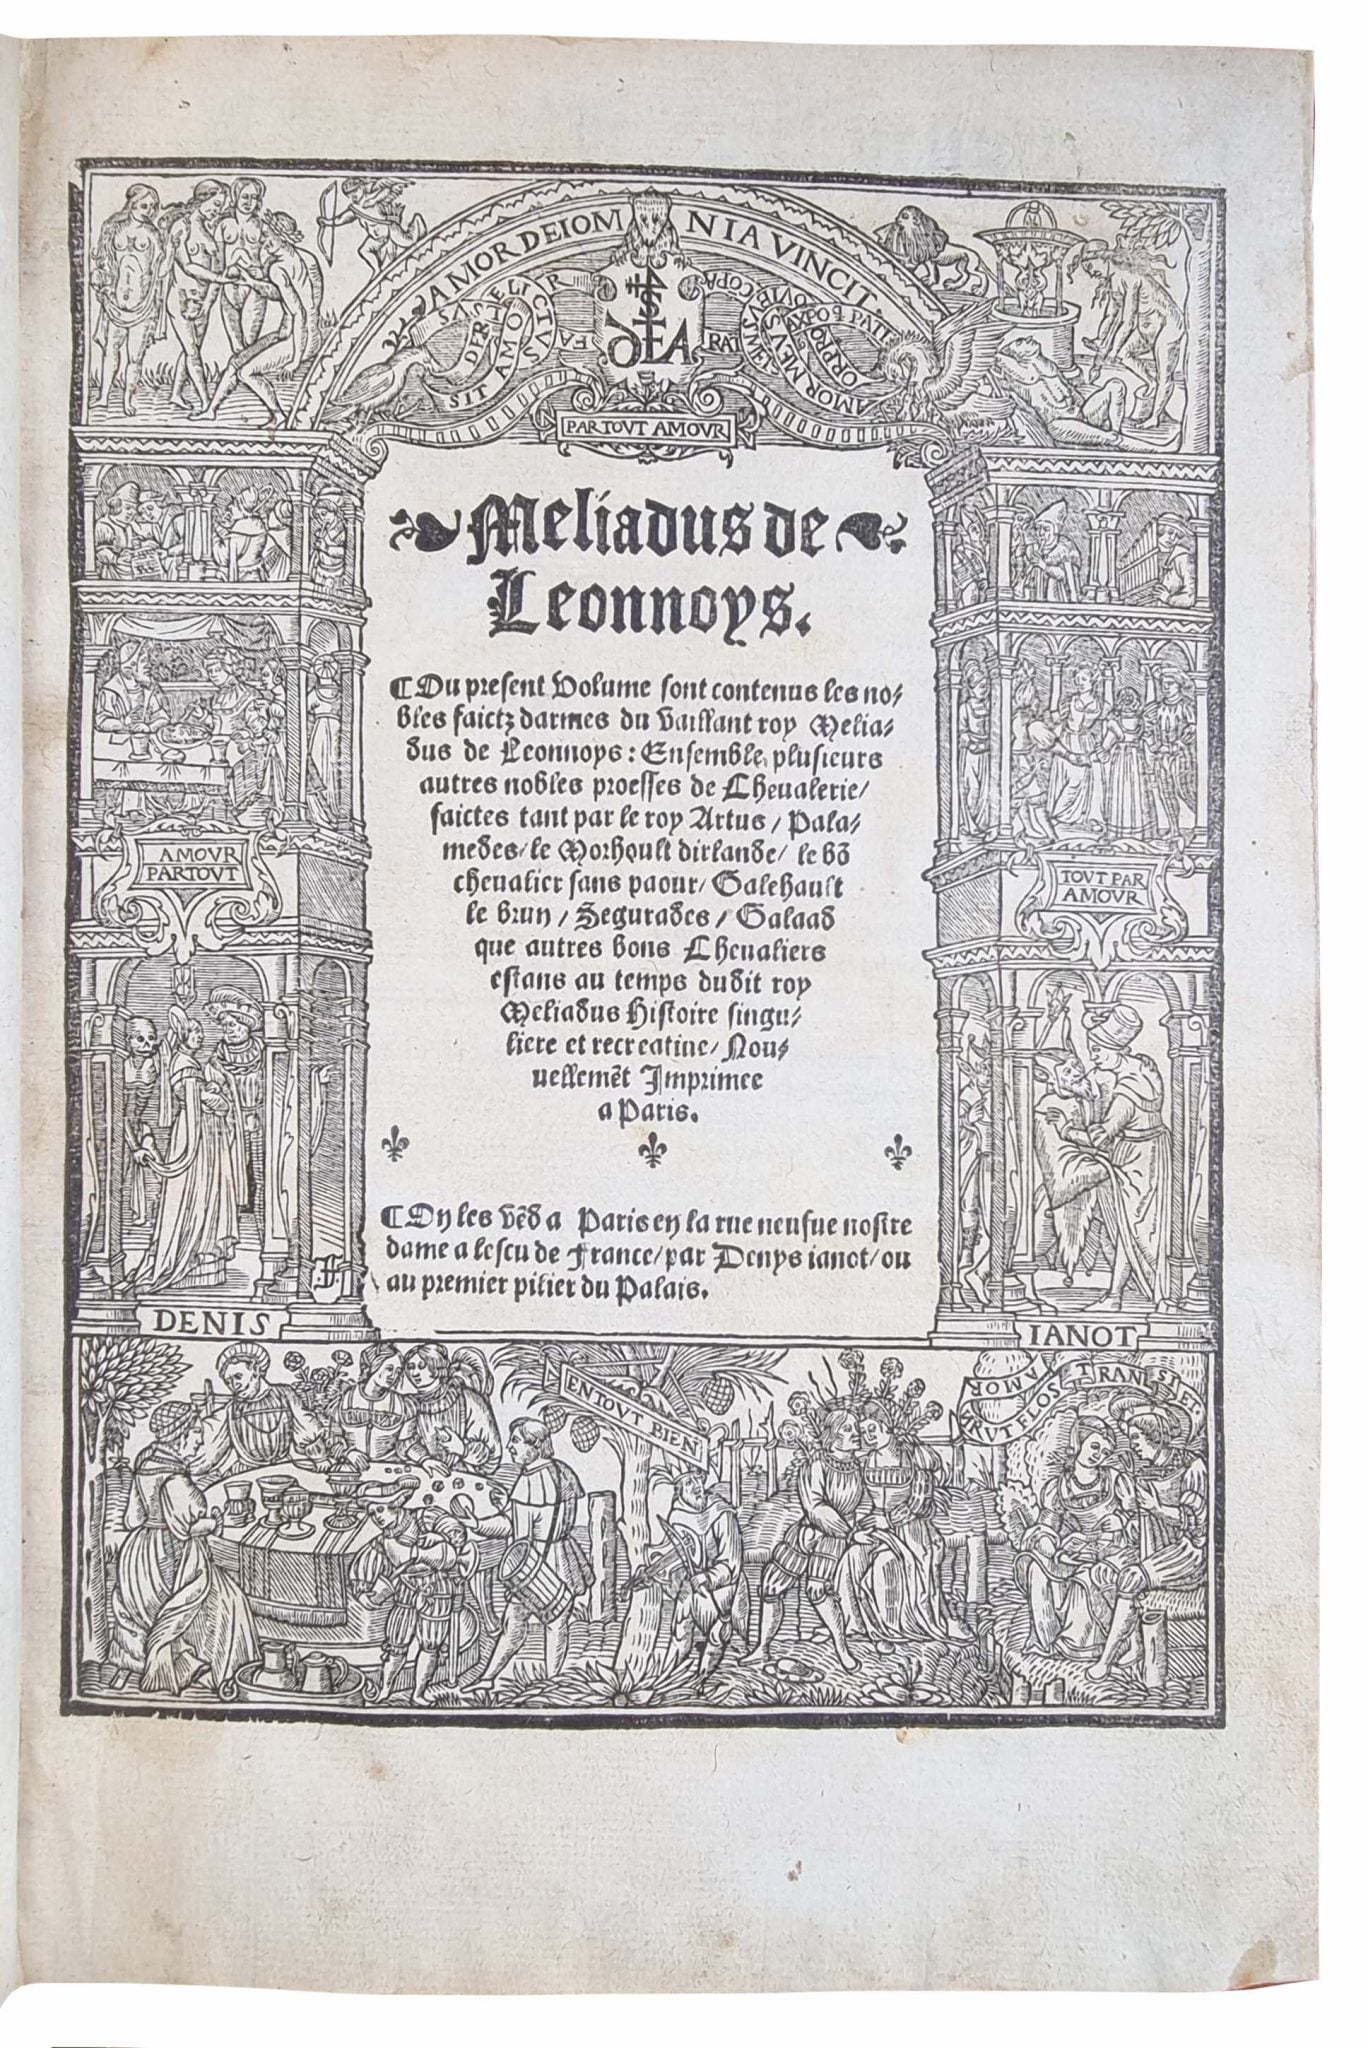 AMOR DEI OMNIA VINCIT
SIT AMOR
PAR TOVT AMOVR
Meliadus de
Leonnoys.
¶Du present Volume sont contenus les no⸗
bles faictz darmes du vaillant roy Melia⸗
dus de Leonnoys: Ensemble plusieurs
autres nobles proesses de Cheualerie/
faictes tant par le roy Artus/ Pala⸗
medes/ le Morhoult dirlande/ le bō
cheualier sans paour/ Galehault
le brun/ Segurades/ Galaad
que autres bons Cheualiers
estans au temps dudit roy
Meliadus Histoire singu⸗
liere et recreatiue/ Nou⸗
uellemēt Imprimee
a Paris.
¶On les vēd a Paris en la rue neufue nostre
dame a lescu de France/ par Denys ianot/ ou
au premier pilier du Palais.
AMOVR
PARTOVT
TOVT PAR
AMOVR
DENIS
IANOT
EN TOVT BIEN
AMOR
VT FLOS TRANSIET